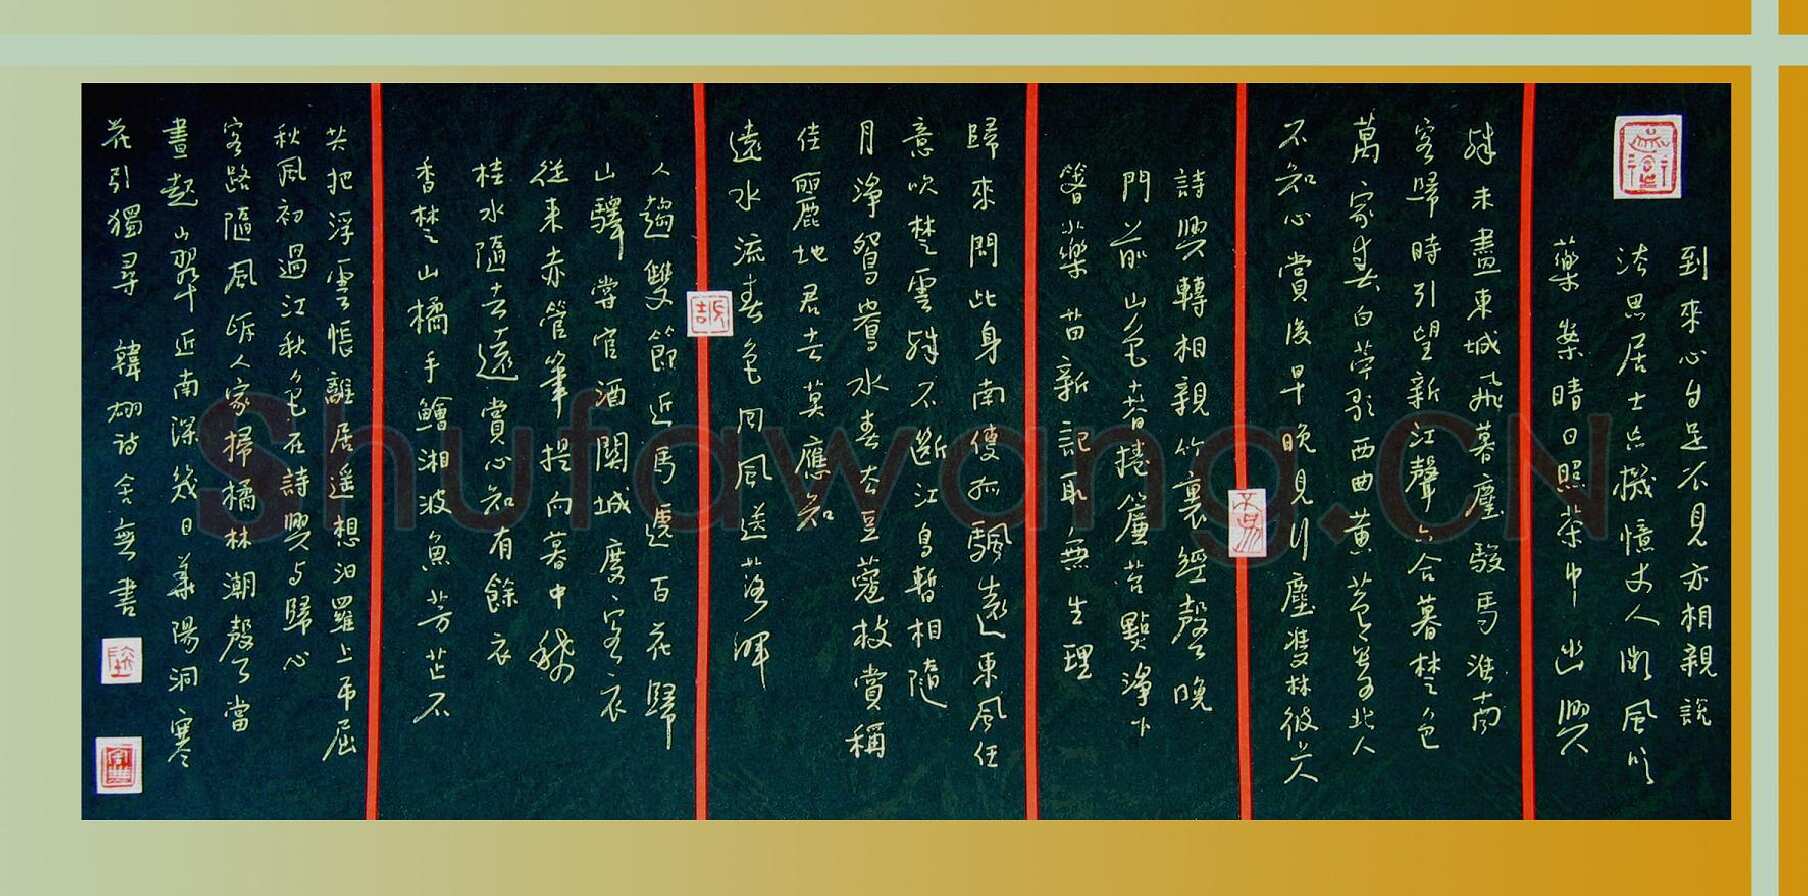 到來心自足不見亦相親說
法思居士忘機憶丈人微風吹
藥案晴日照茶巾幽興
殊未盡東城飛暮塵駿馬淮南
客歸時引望新江聲六合暮楚色
萬家春白苧歌西曲黃苞寄北人
不知心賞後早晚見行塵雙林彼上人
詩興轉相親竹裏經聲晚
門前山色春捲簾苔點淨下
箸藥苗新記取無生理
歸來問此身南使孤帆遠東風任
意吹楚雲殊不斷江鳥暫相隨
月淨鴛鴦水春生豆蔻枝賞稱
佳麗地君去莫應知
遠水流春色回風送落暉
人趨雙節近馬遞百花歸
山驛嘗官酒關城度客衣
從來赤管筆提向暮中稀
桂水隨去遠賞心知有餘衣
香楚山橘手鱠湘波魚芳芷不
共把浮雲悵離居遥想汨羅上弔屈
秋風初過江秋色在詩興与歸心
客路隨風岸人家掃橘林潮聲當
晝起山翠近南深幾日華陽洞寒
花引獨尋 韓翃詩舍無書
Shufawang.CN